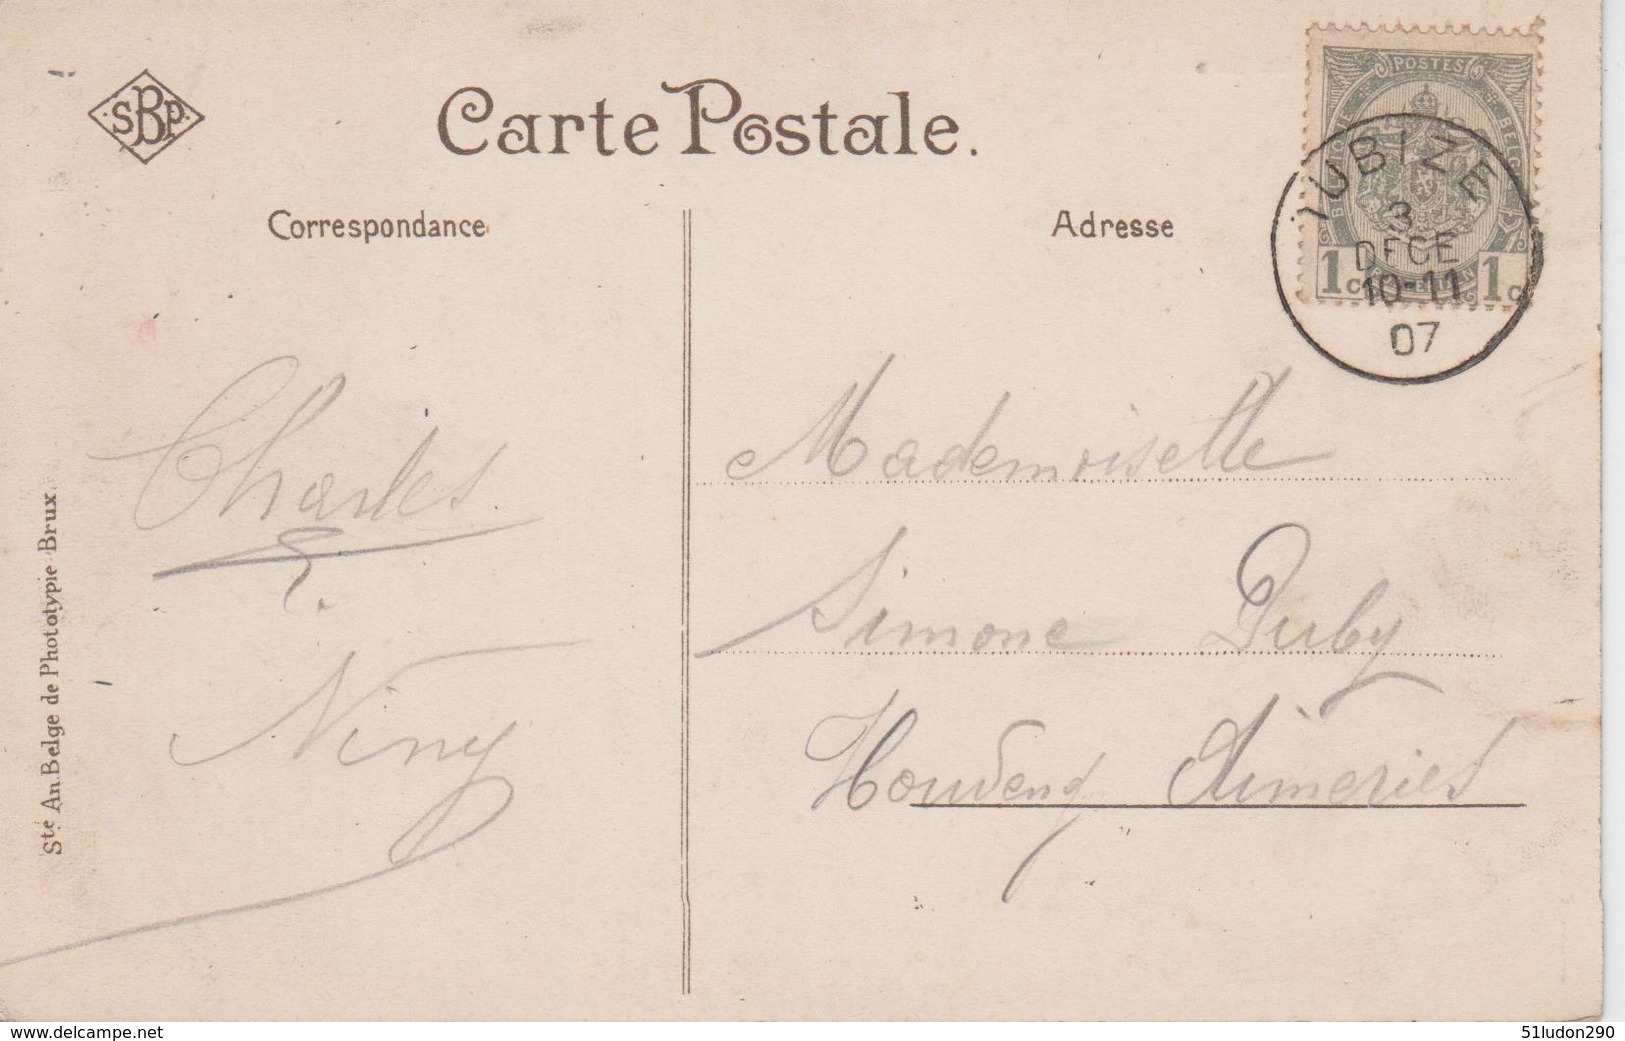 SBP
Carte Postale.
Correspondance
Adresse
POSTES
BELGIQUE
BELGIË
1c
1c
JUBIZE
3
DECE
10-11
07
Charles
&.
Niny
Mademoiselle
Simone Puby
Houdeng Aimeries
Sté An. Belge de Phototypie Brux.
www.delcampe.net
51ludon290